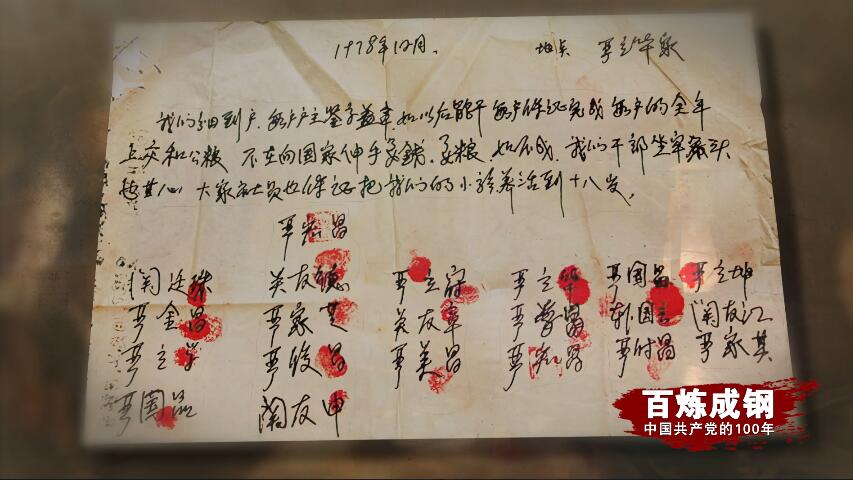 1978年12月. 地点 严立华家
我们分田到户,每户户主签字盖章,如以后能干,每户保证完成每户的全年
上交和公粮,不在向国家伸手要钱,要粮,如不成,我们干部坐牢杀头
也甘心,大家社员也保证把我们的小孩养活到十八岁。
严宏昌
关廷珠 关友德 严立符 严立华 严国昌 严立坤
严金昌 严家芝 关友章 严学昌 韩国云 关友江
严立学 严俊昌 严美昌 严宏昌 严付昌 严家其
严国品 关友申
百炼成钢
中国共产党的100年